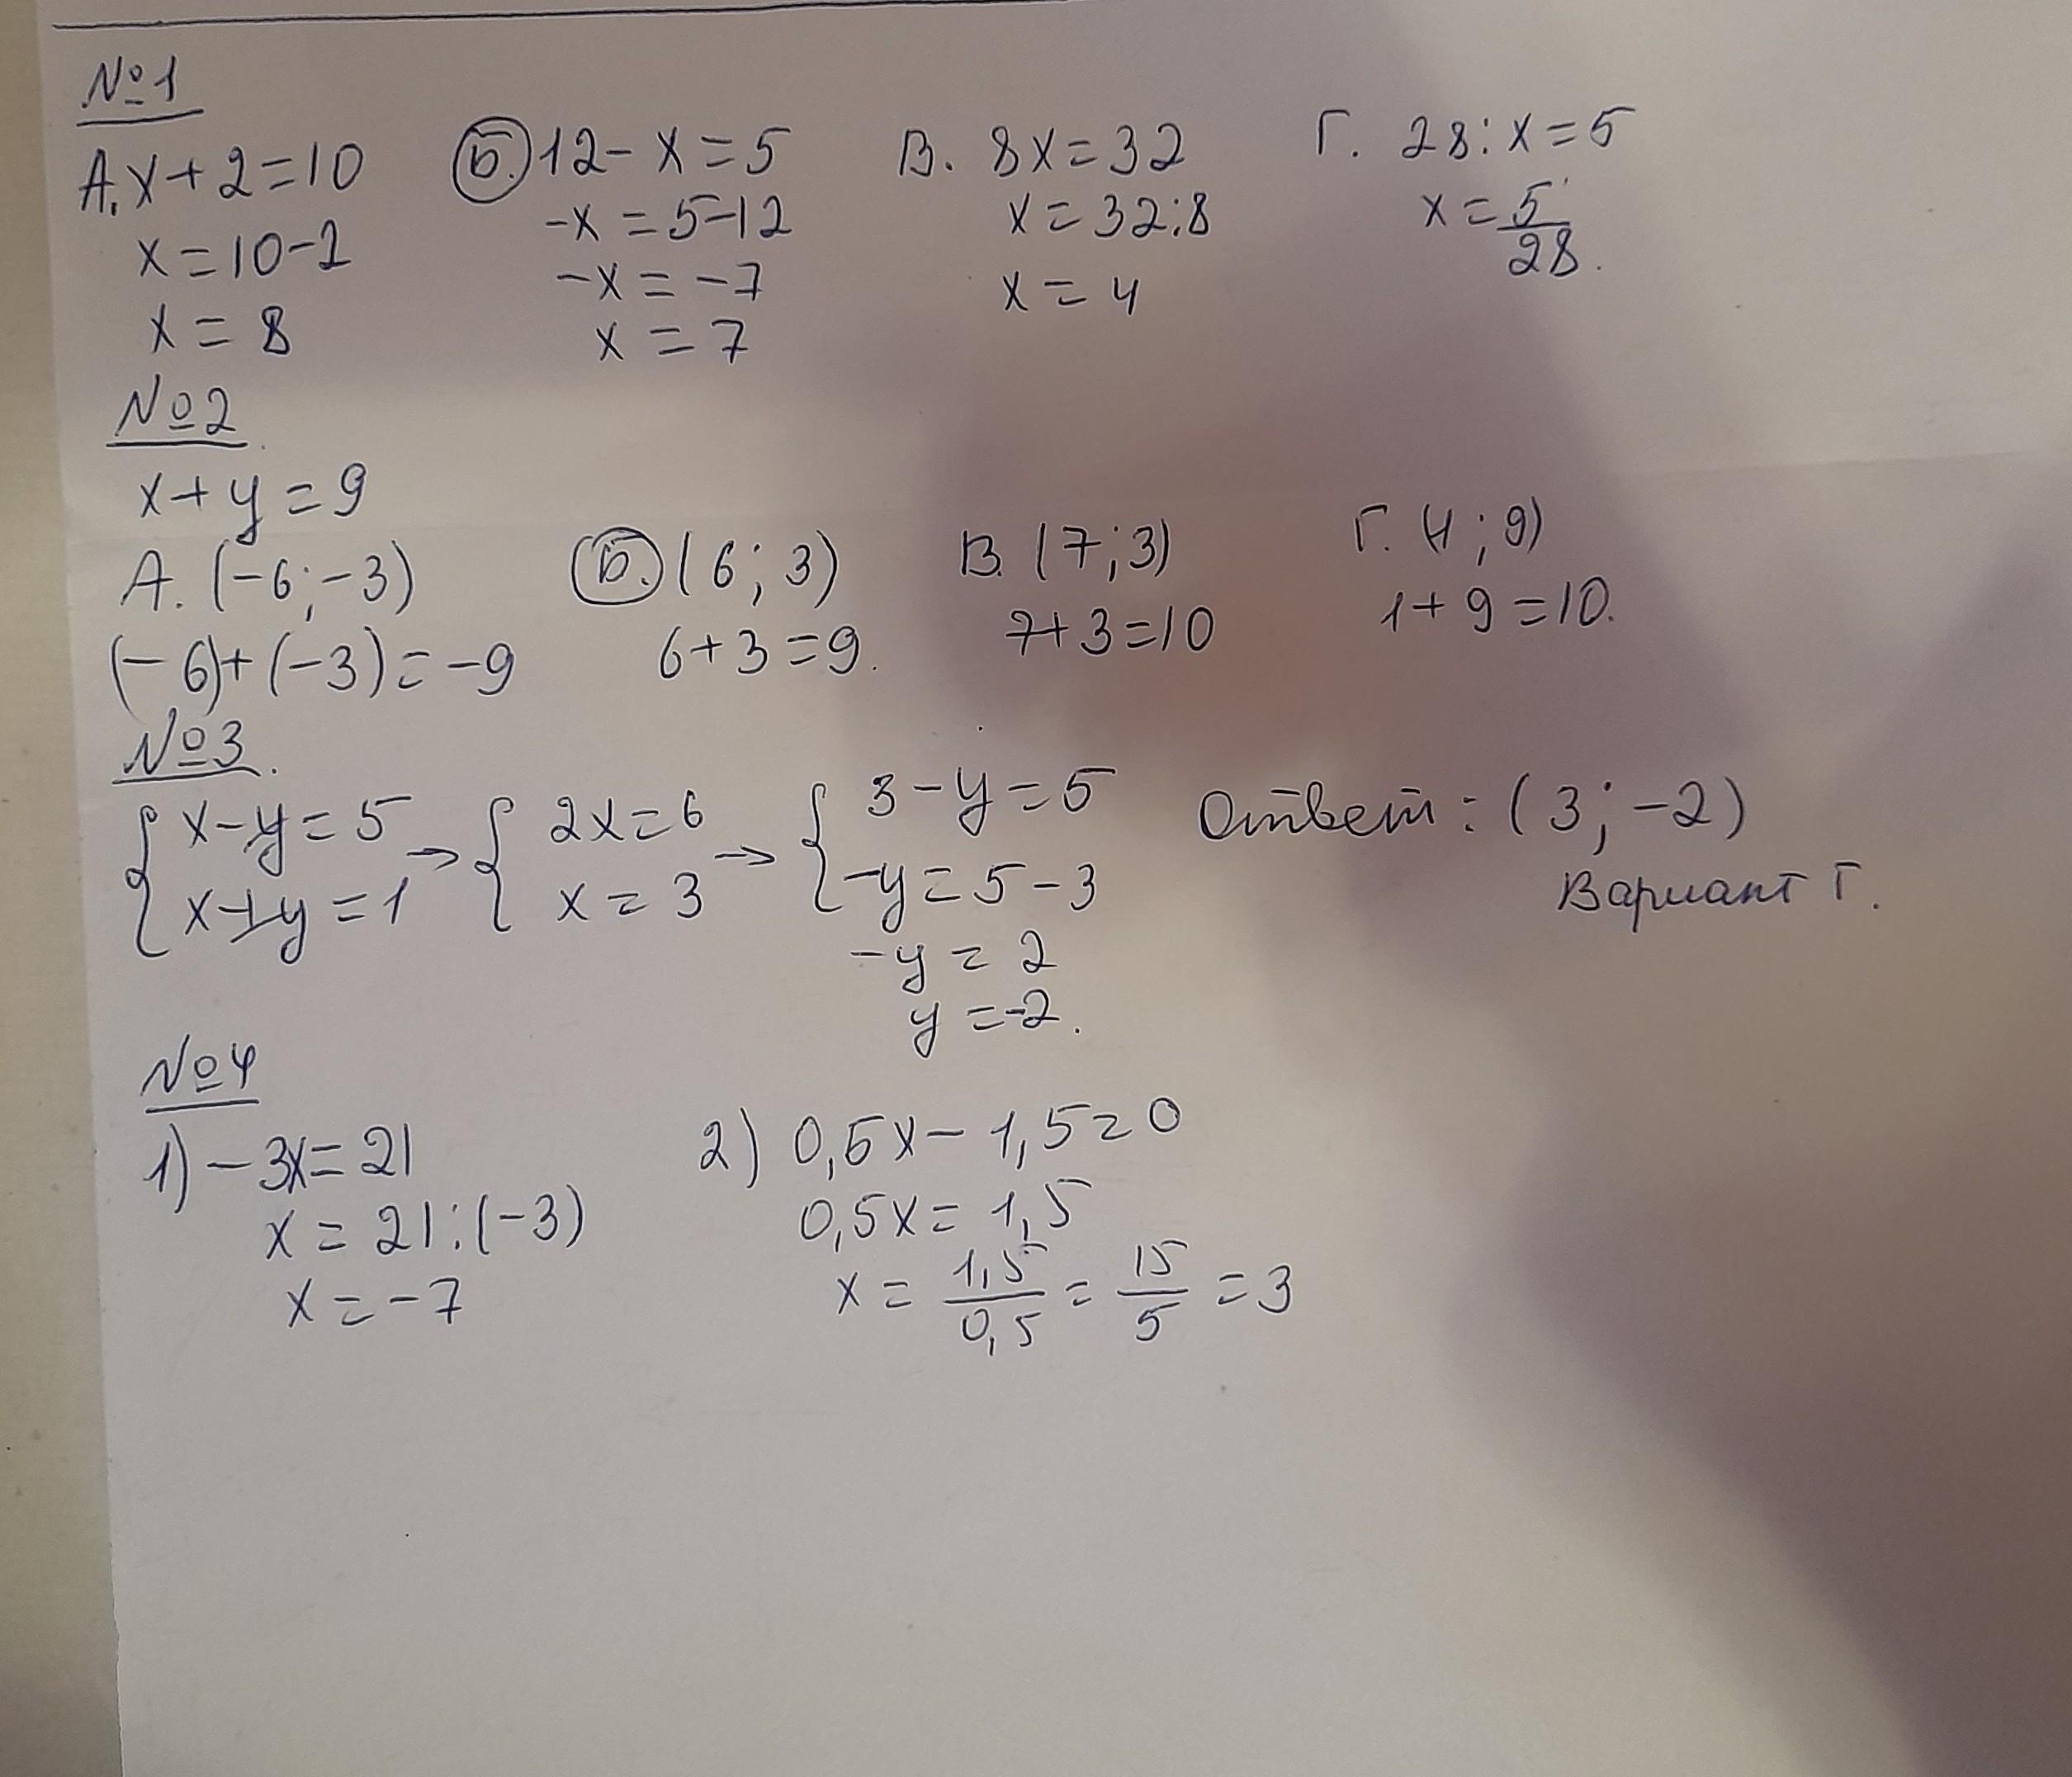 №1
А. x+2=10 Б. 12-x=5 В. 8x=32 Г. 28:x=5
x=10-2 -x=5-12 x=32:8 x=5/28.
x=8 -x=-7 x=4
x=7
№2
x+y=9
А. (-6;-3) Б. (6;3) В. (7;3) Г. (1;9)
(-6)+(-3)=-9 6+3=9. 7+3=10 1+9=10.
№3.
{x-y=5 → {2x=6 → {3-y=5 Ответ: (3;-2)
x+y=1 x=3 -y=5-3 Вариант Г.
-y=2
y=-2.
№4
1) -3x=21 2) 0,5x-1,5=0
x=21:(-3) 0,5x=1,5
x=-7 x=1,5/0,5=15/5=3